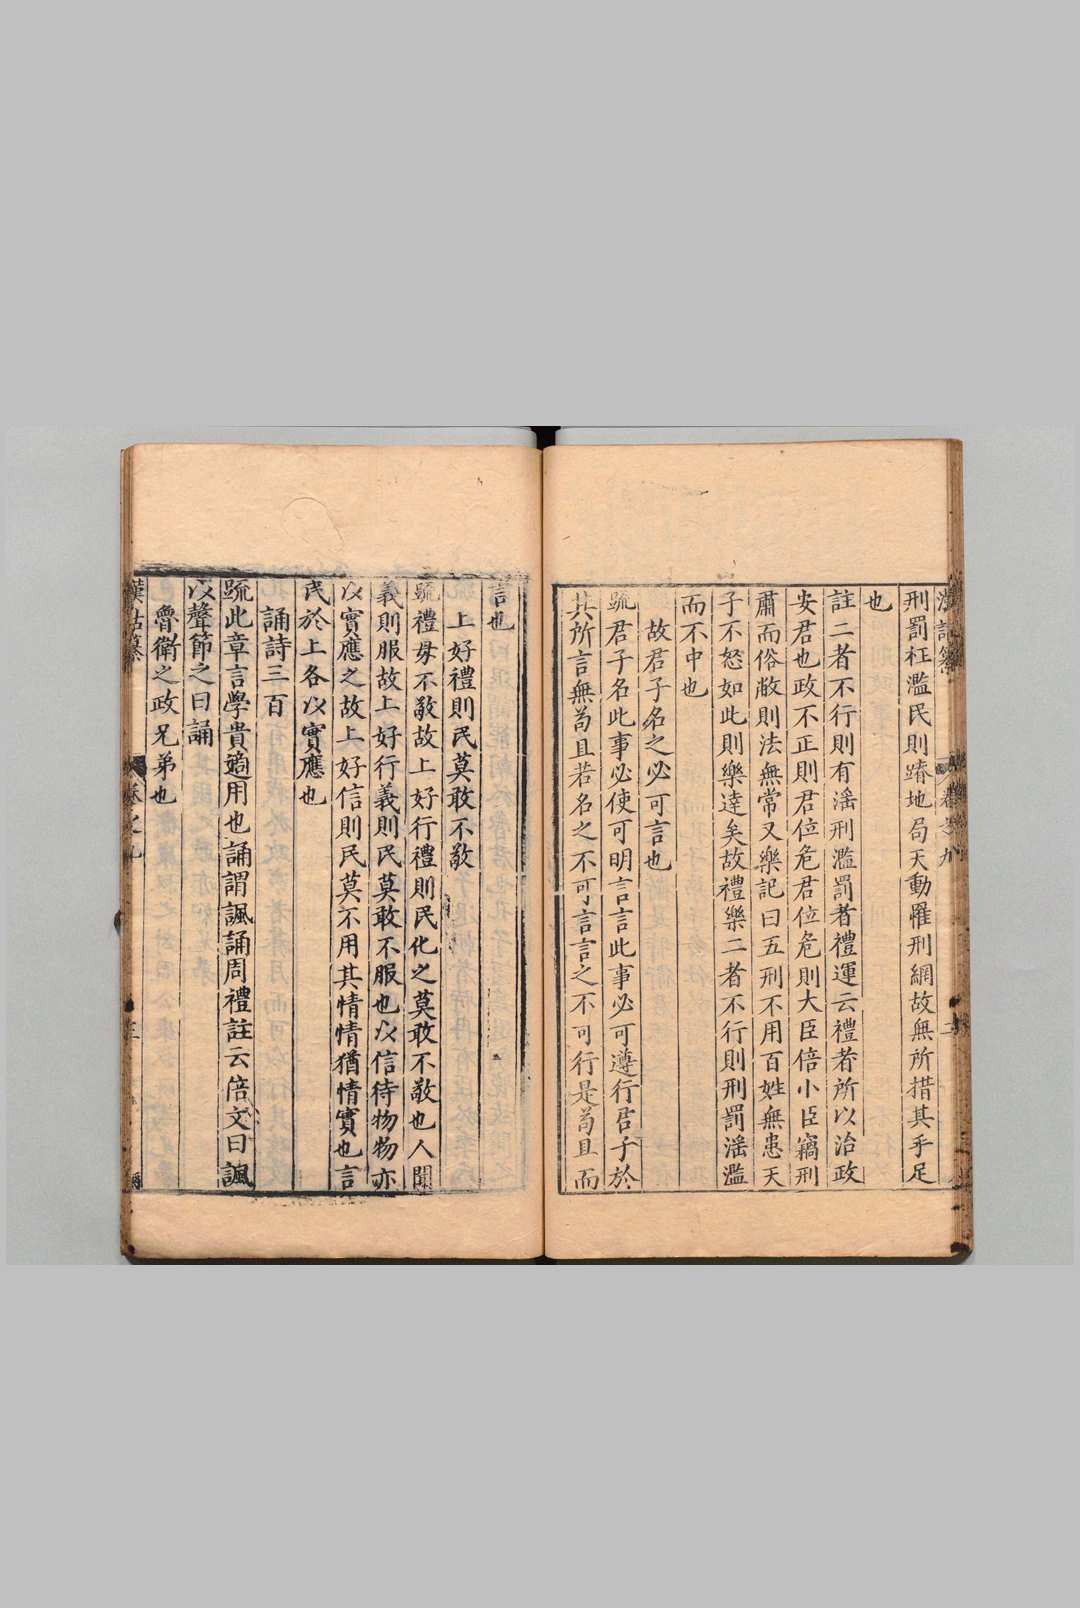 漢詁纂 卷之九 二
刑罰枉濫民則蹐地局天動罹刑網故無所措其手足
也
註二者不行則有滛刑濫罰者禮運云禮者所以治政
安君也政不正則君位危君位危則大臣倍小臣竊刑
肅而俗敝則法無常又樂記曰五刑不用百姓無患天
子不怒如此則樂達矣故禮樂二者不行則刑罰滛濫
而不中也
故君子名之必可言也
疏君子名此事必使可明言言此事必可遵行君子於
其所言無苟且若名之不可言言之不可行是苟且而
言也
上好禮則民莫敢不敬
疏禮毋不敬故上好行禮則民化之莫敢不敬也人聞
義則服故上好行義則民莫敢不服也以信待物物亦
以實應之故上好信則民莫不用其情情猶情實也言
民於上各以實應也
誦詩三百
疏此章言學貴適用也誦謂諷誦周禮註云倍文曰諷
以聲節之曰誦
魯衛之政兄弟也
漢詁纂 卷之九 三